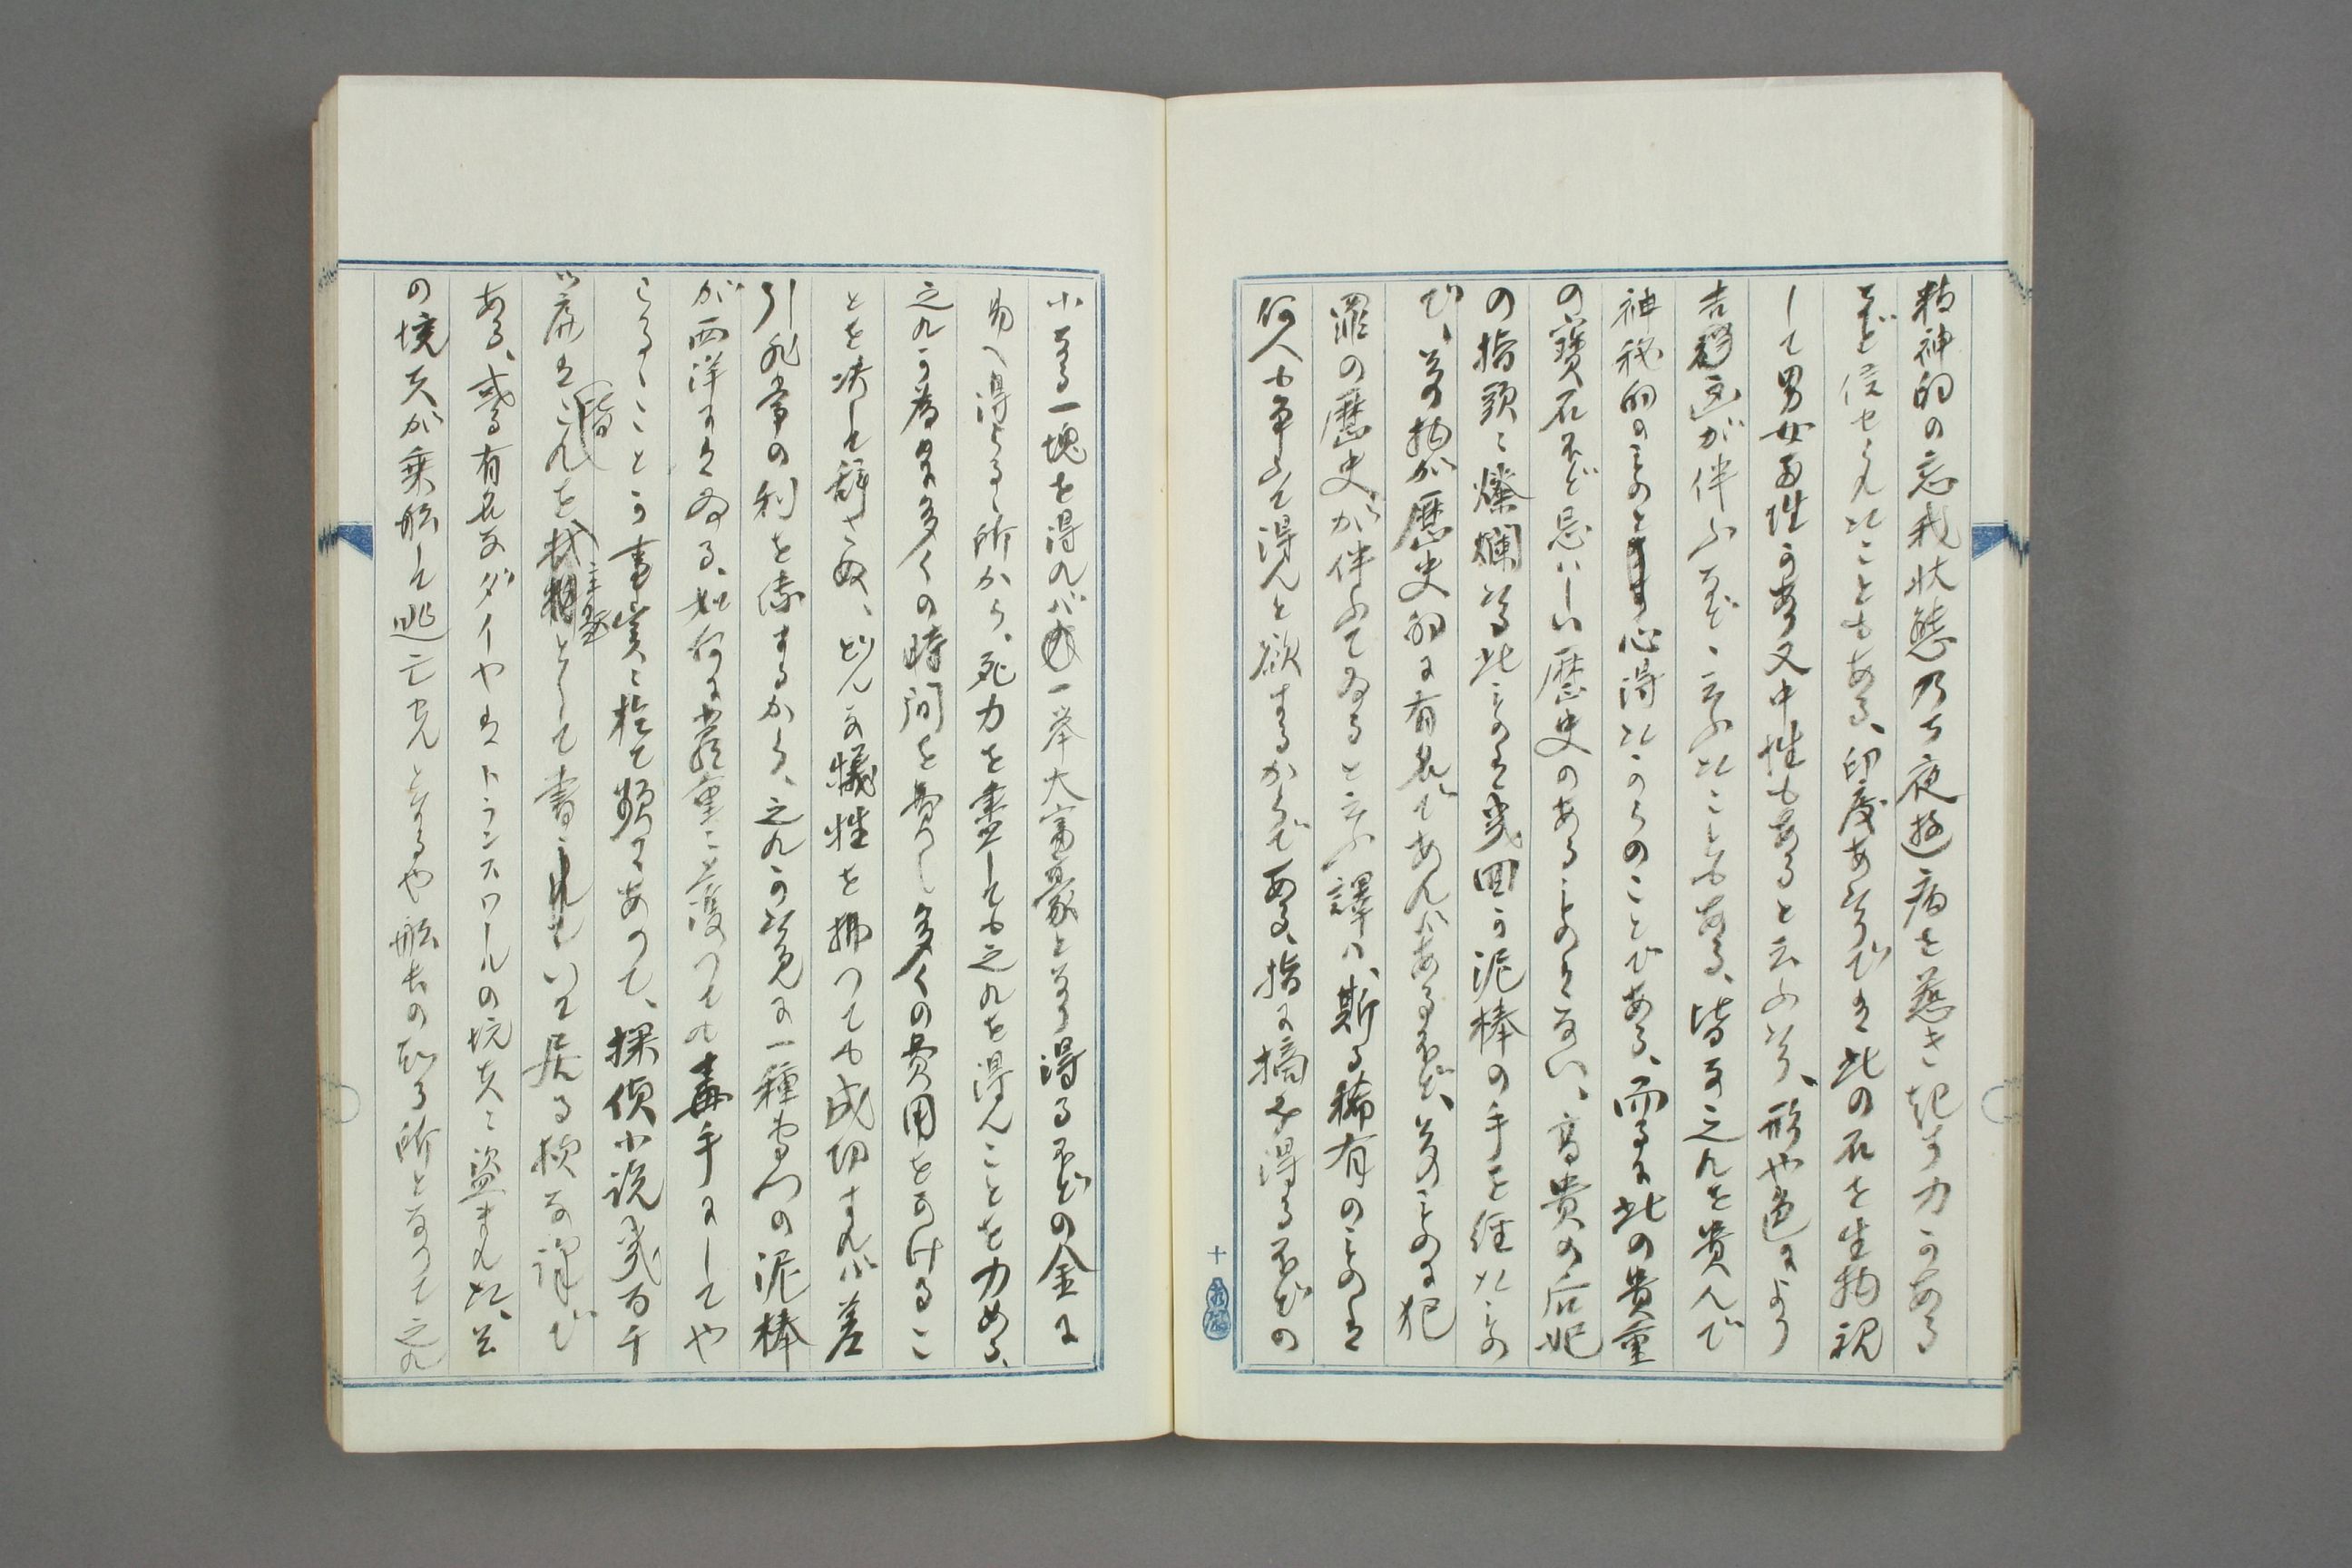 精神的の忘我状態乃至夜遊病を惹き起す力がある
など信ぜられたこともある、印度あたりでは此の石を生物視
して男女両性があり又中性もあると云ふなり、形や色により
吉凶が伴ふなど云ふたこともある、皆な之れを貴んで
神秘的のものと心得たからのことである、而るに此の貴重
の寶石ほど忌はしい歴史のあるものはない、高貴の后妃
の指頭に燦爛たる此ものは幾回か泥棒の手を経たもの
で、其の物が歴史的に有名であればあるほど、其のものに犯
罪の歴史が伴ふてゐると云ふ譯は、斯る稀有のものは
何人も争ふて得んと欲するからである、指に摘み得るほどの
十
小なる一塊を得れば一挙大富豪となり得るほどの金に
易へ得らるゝ所から、死力を盡しても之れを得んことを力める、
之れが為めに多くの時間を費し多くの費用をかけるこ
とを決して辞さぬ、どんな犠牲を拂つても成功すれば差
引非常の利を儲するから、之れが為に一種専門の泥棒
が西洋にはゐる、如何に厳重に護つても毒手にしてや
らるゝことが事実に於て頻々あつて、探偵小説幾百千
の境夫が乗船して逃亡せんとするや船長の知る所となりて之れ
ある、或る有名なダイヤはトランスワールの坑夫に盗まれた、其